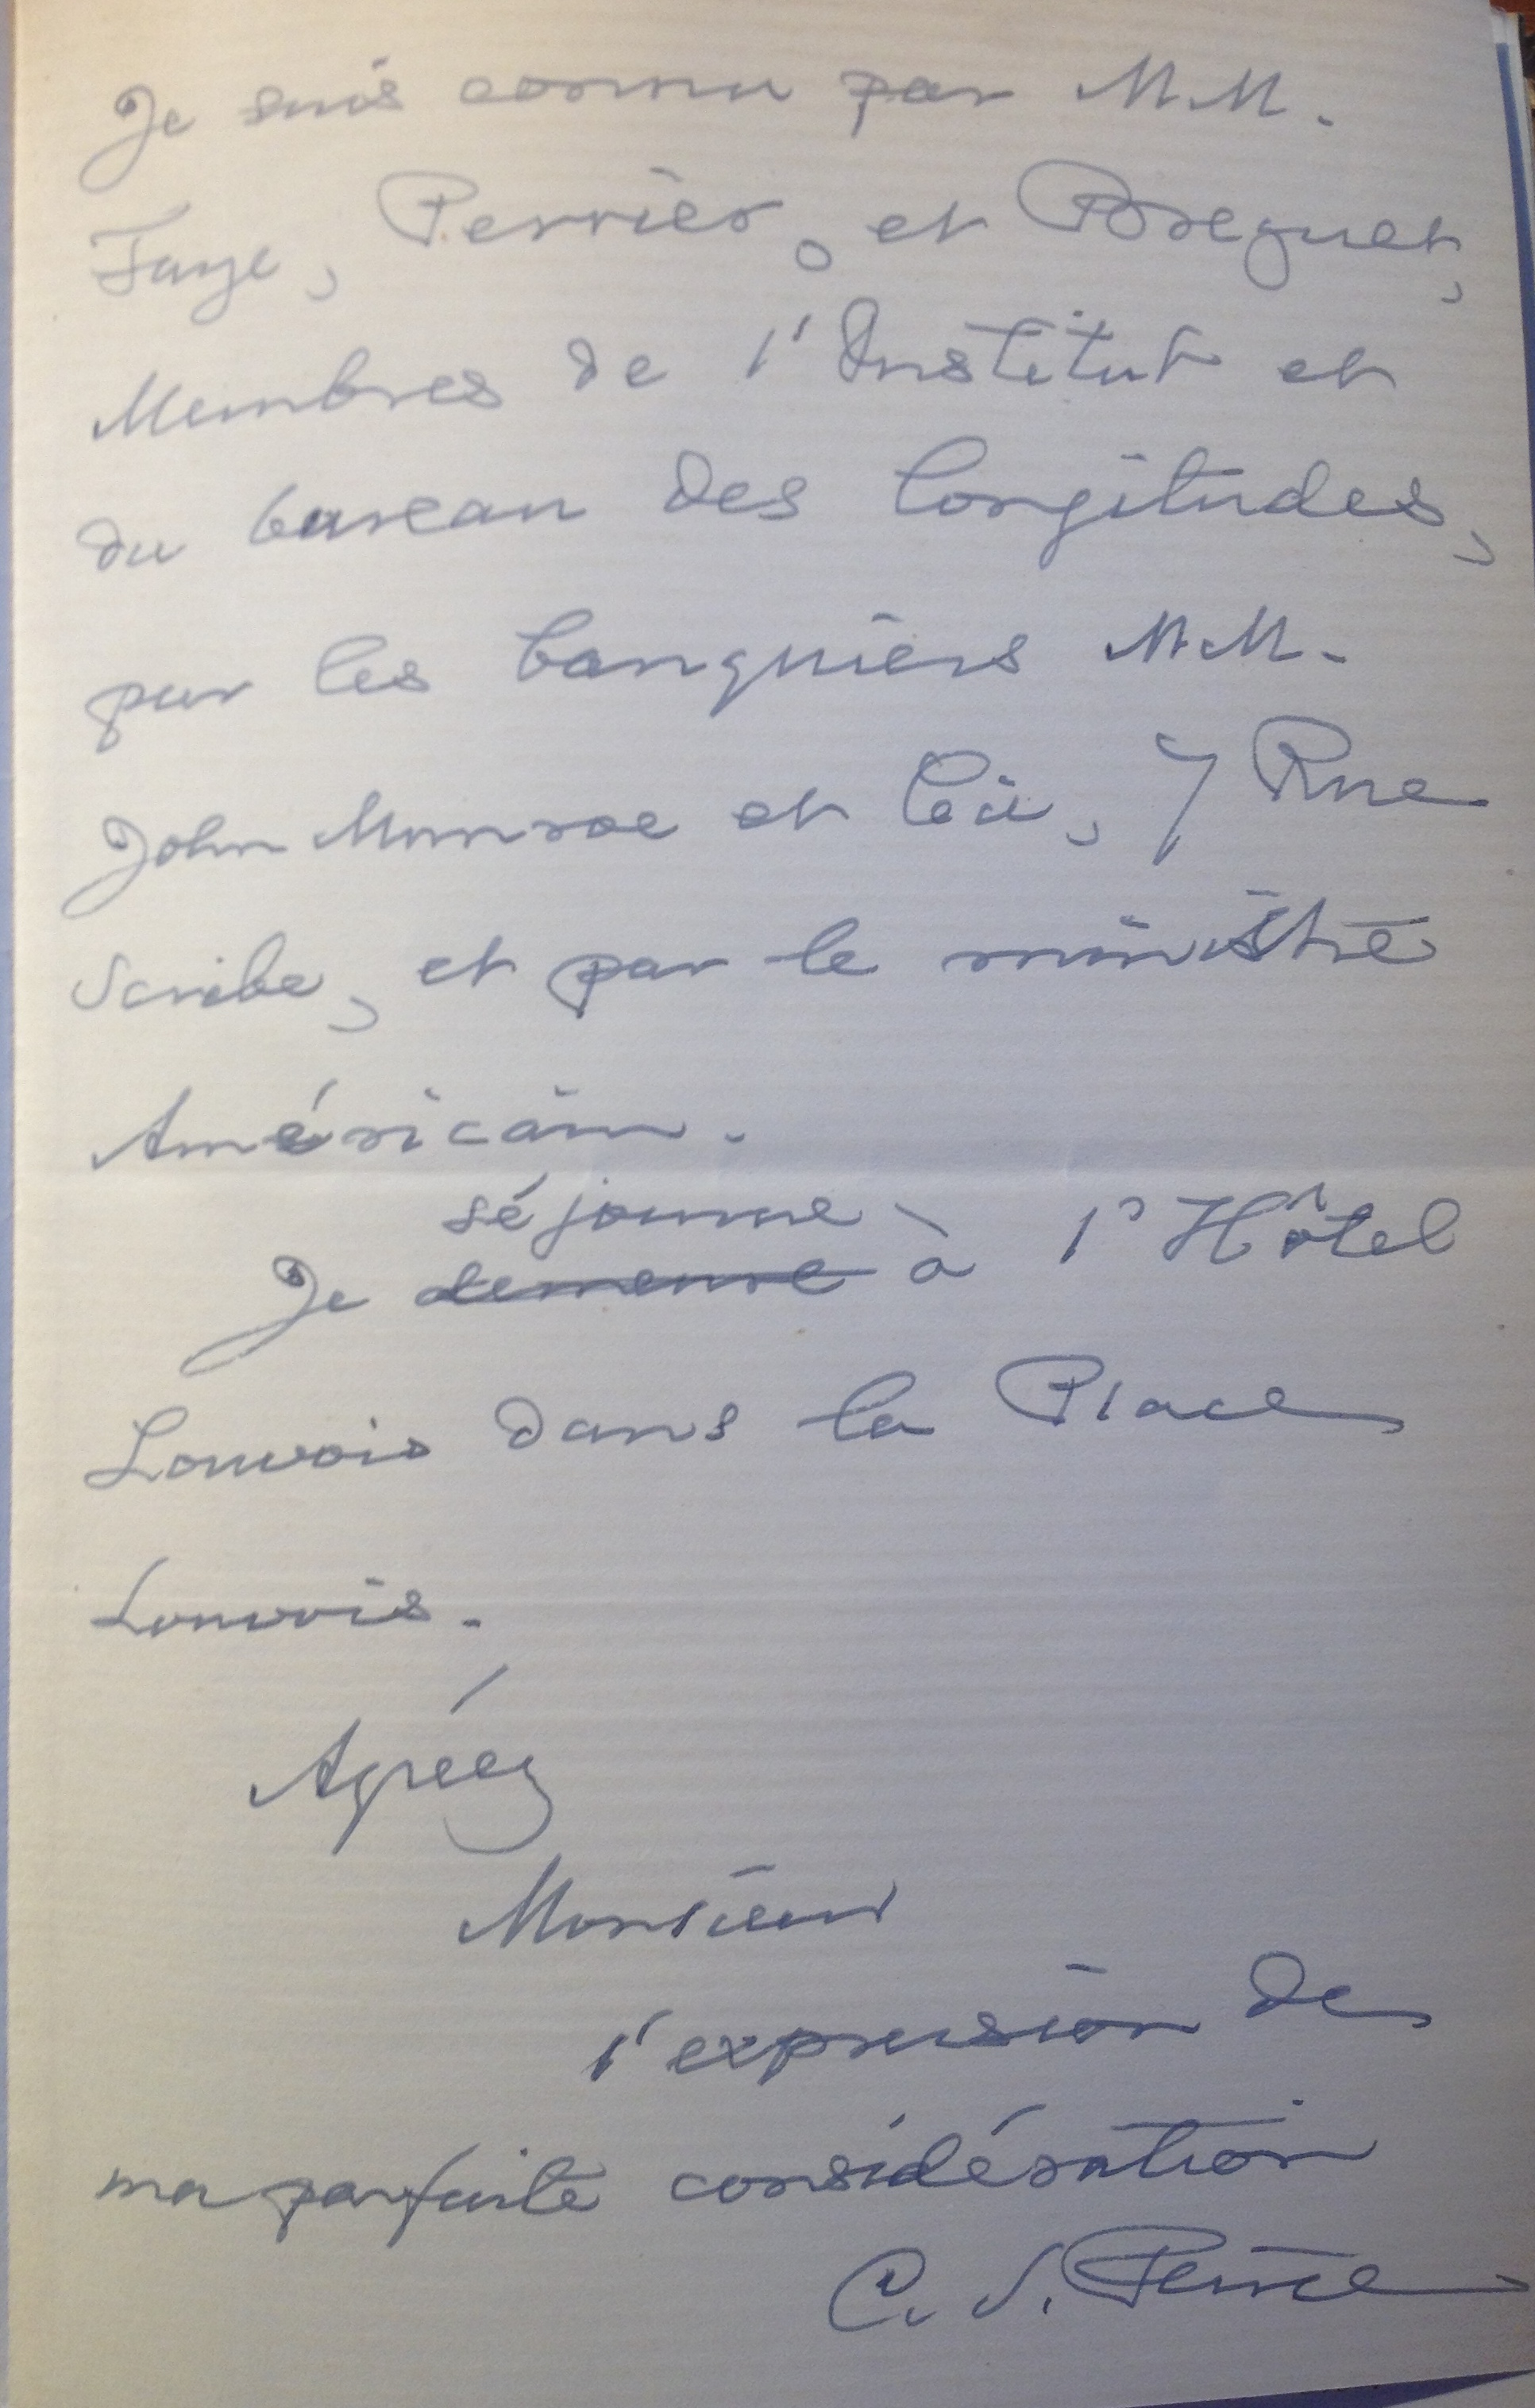 Je suis connu par MM.
Faye, Perrier, et Breguet,
Membres de l'Institut et
du bureau des longitudes,
par les banquiers MM.
John Munroe et Cie, 7 Rue
Scribe, et par le ministre
Américain.
séjourne
Je demeure à l'Hôtel
Louvois dans la Place
Louvois.
Agréez
Monsieur
l'expression de
ma parfaite considération
C. S. Peirce